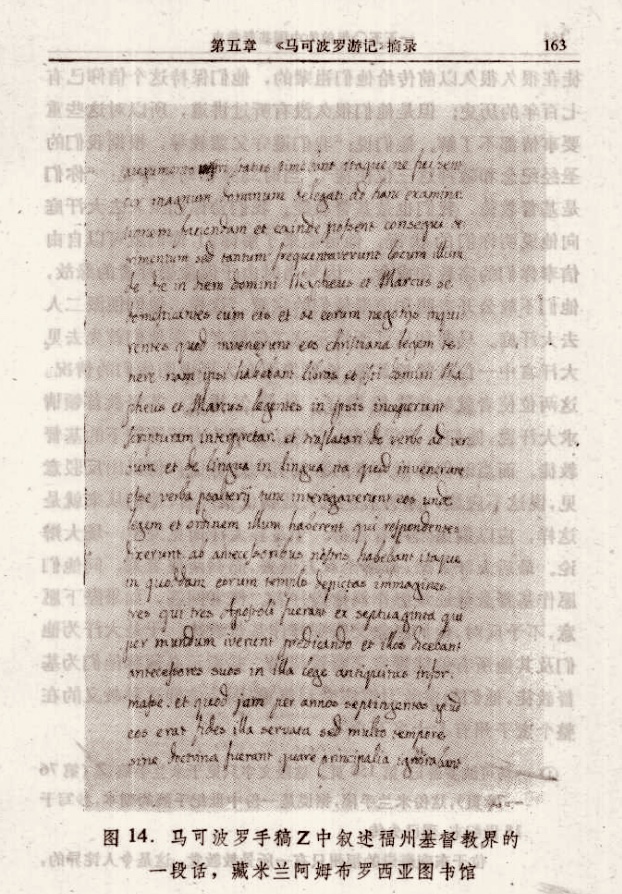 第五章 《马可波罗游记》摘录 163
augumento status timebant itaque ne fuissent
ex magnum dominum delegati ad hanc examina
tionem faciendam et exinde possent consequi de
trimentum sed tantum frequentaverunt locum illum
de die in diem domini Mapheus et Marcus do
mesticantes cum eis et de eorum negotijs inqui
rentes quod invenerunt eos christianam legem te
nere nam ipsi habebant libros et isti domini Ma
pheus et Marcus legentes in ipsis inceperunt
scripturam interpretari et traslatari de verbo ad ver
bum et de lingua in lingua ita quod invenerunt
esse verba psalterij tunc interrogaverunt eos unde
legem et ordinem illum haberent qui respondentes
dixerunt ab antecessoribus nostris habebant itaque
in quodam eorum templo depictas immagines
tres qui tres Apostoli fuerant ex septuaginta qui
per mundum iverunt predicando et illos dicebant
antecessores suos in illa lege antiquitus infor
masse et quod jam per annos septingentos apud
eos erat fides illa servata sed multo tempore
sine doctrina fuerant quare principalia ignorabant
图 14. 马可波罗手稿Z中叙述福州基督教界的
一段话，藏米兰阿姆布罗西亚图书馆